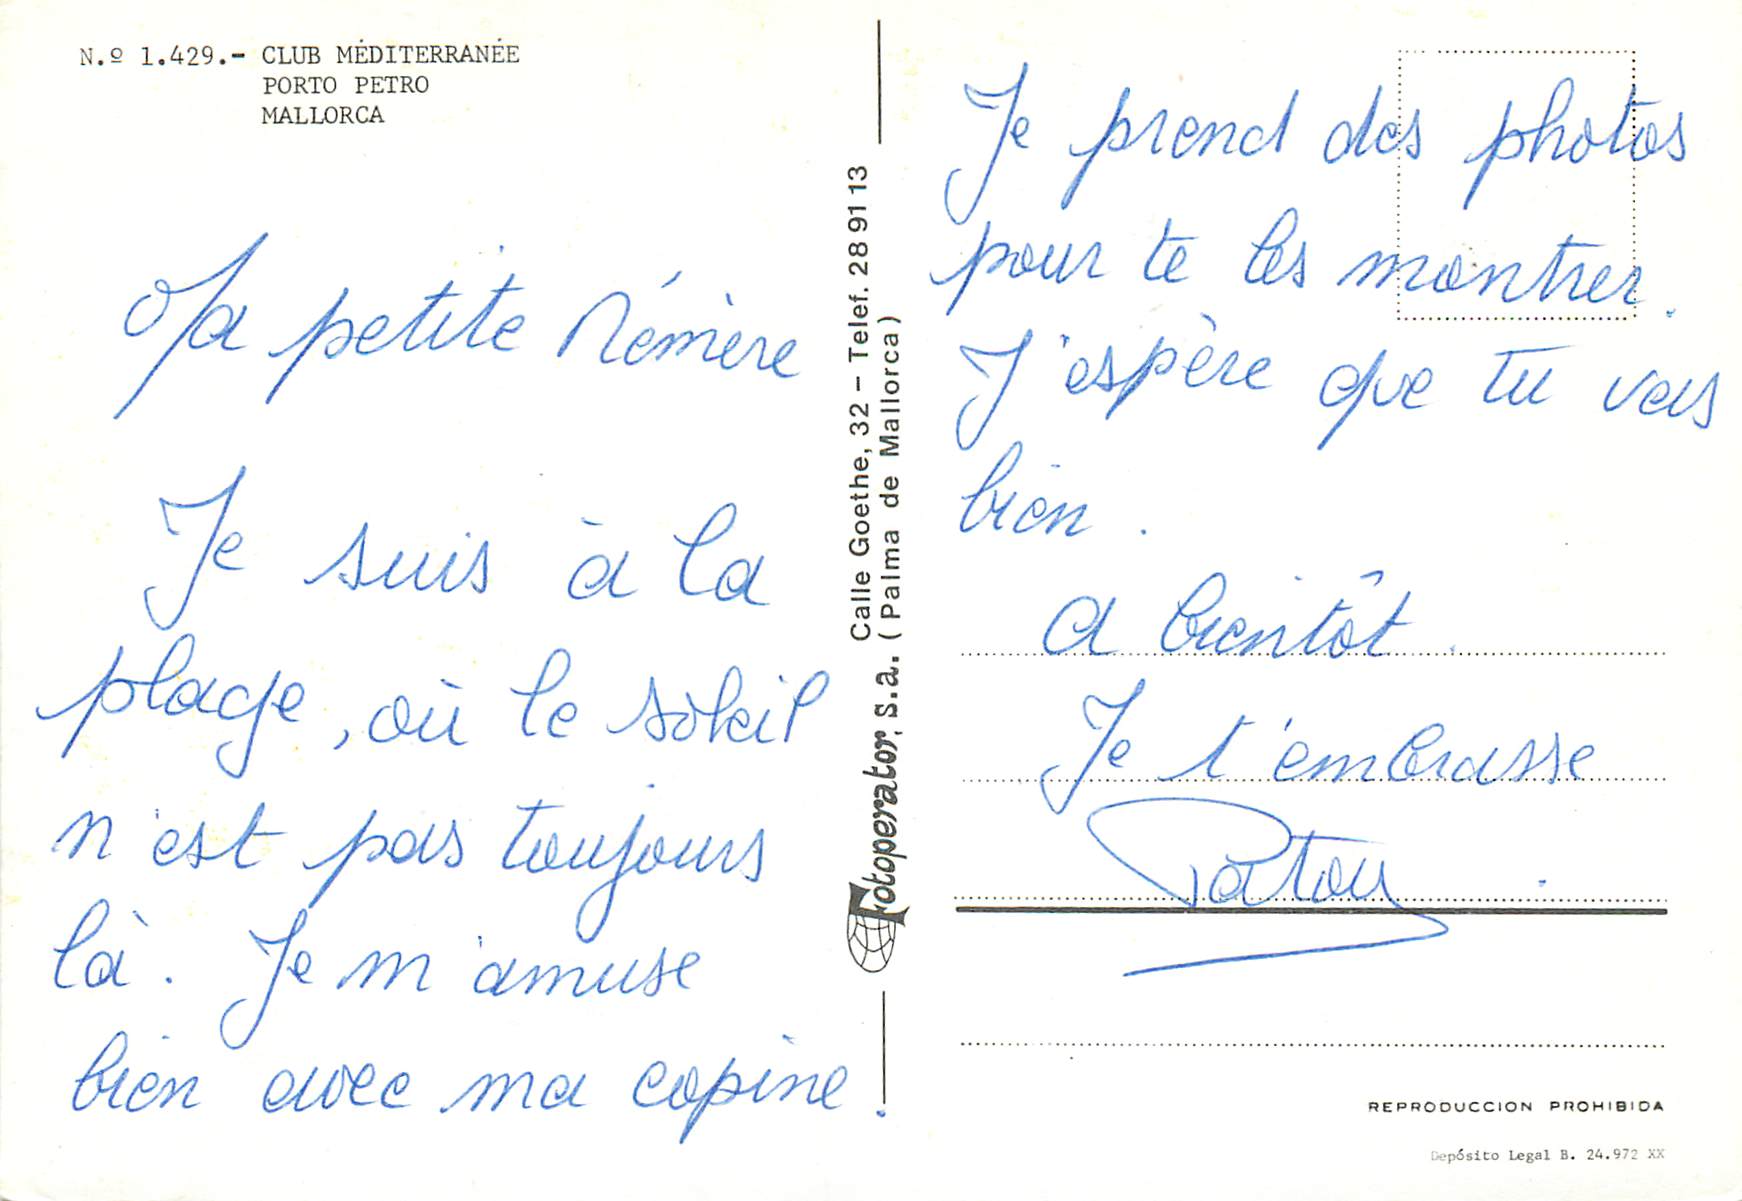 N.º 1.429.- CLUB MÉDITERRANÉE
PORTO PETRO
MALLORCA
Ma petite Mémère
Je suis à la
plage, où le soleil
n'est pas toujours
là. Je m'amuse
bien avec ma copine.
Fotoperator, s.a. Calle Goethe, 32 – Telef. 28 91 13
(Palma de Mallorca)
Je prend des photos
pour te les montrer.
J'espère que tu vas
bien.
A bientôt.
Je t'embrasse
Patou.
REPRODUCCION PROHIBIDA
Depósito Legal B. 24.972 XX